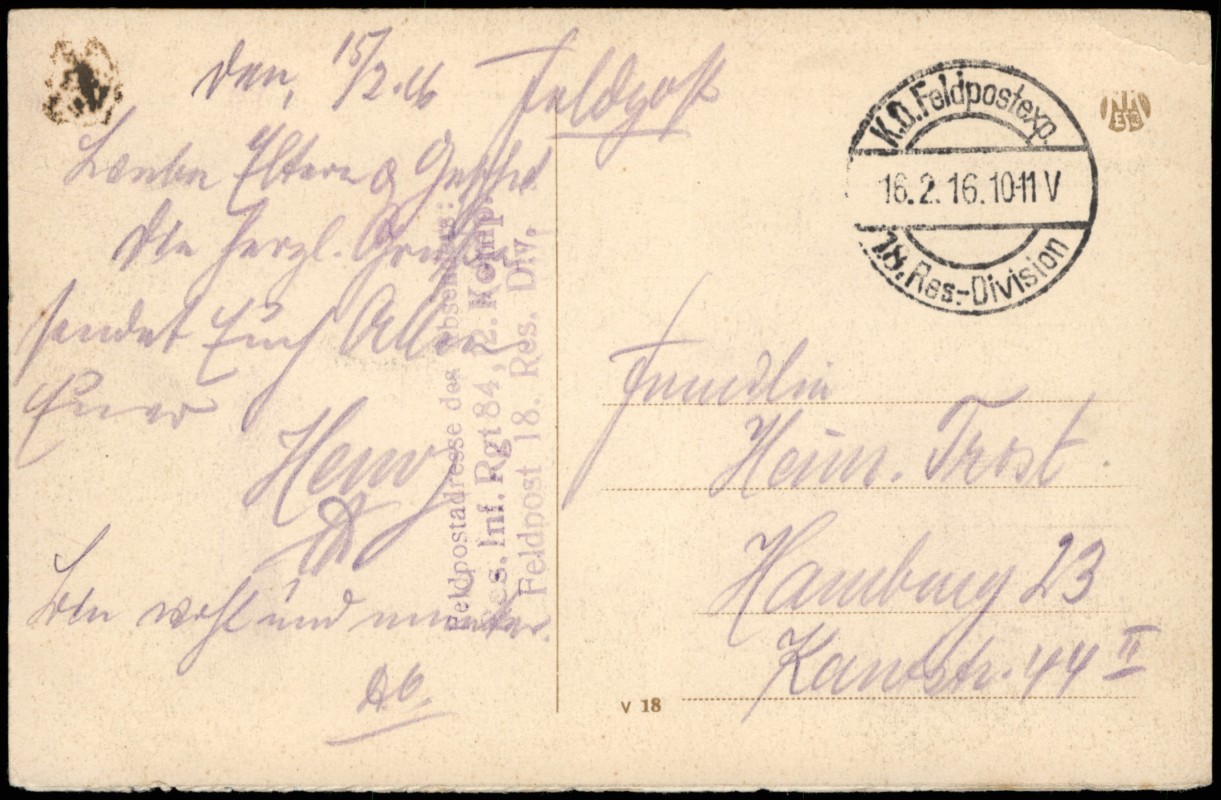 den, 15/2.16
Feldpost
Lieben Eltern & Geschw.
Die herzl. Grüße
sendet Euch Allen
Euer
Henry
Bin wohl und munter.
Feldpostadresse des Absenders:
Res. Inf. Rgt 84, 2. Komp.
Feldpost 18. Res. Div.
K.D. Feldpostexp.
16.2.16.10-11 V
18. Res.-Division
Familie
Heinr. Trost
Hamburg 23
Kantstr. 44 II
V 18